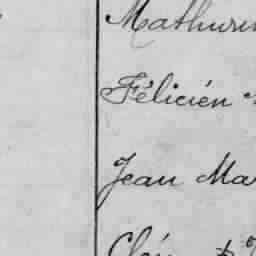 Mathurin
Félicien
Jean Ma